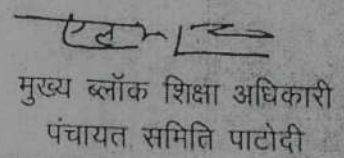 मुख्य ब्लॉक शिक्षा अधिकारी
पंचायत समिति पाटोदी